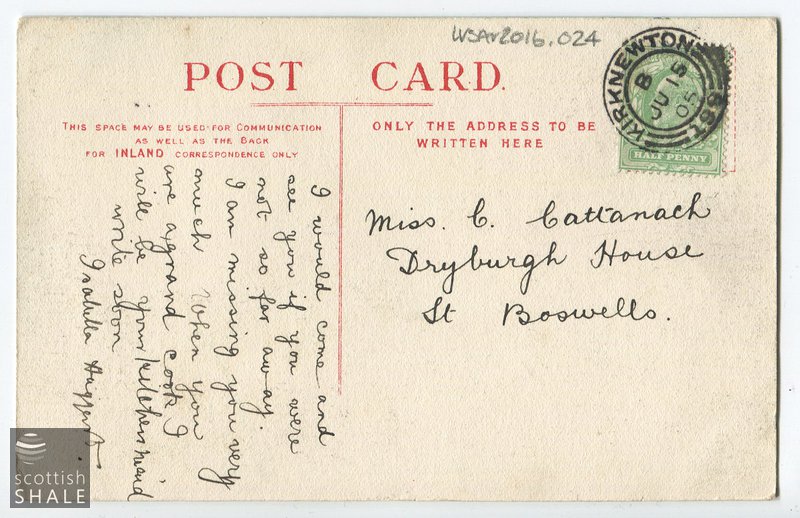 LVSAV2016.024
POST CARD.
THIS SPACE MAY BE USED FOR COMMUNICATION
AS WELL AS THE BACK
FOR INLAND CORRESPONDENCE ONLY
ONLY THE ADDRESS TO BE
WRITTEN HERE
KIRKNEWTON
B
JU 15
05
HALF PENNY
Miss. C. Cattanach
Dryburgh House
St Boswells.
I would come and
see you if you were
not so far away.
I am missing you very
much When you
are a grand cook I
will be your kitchenmaid
write soon
Isabella
scottish
SHALE